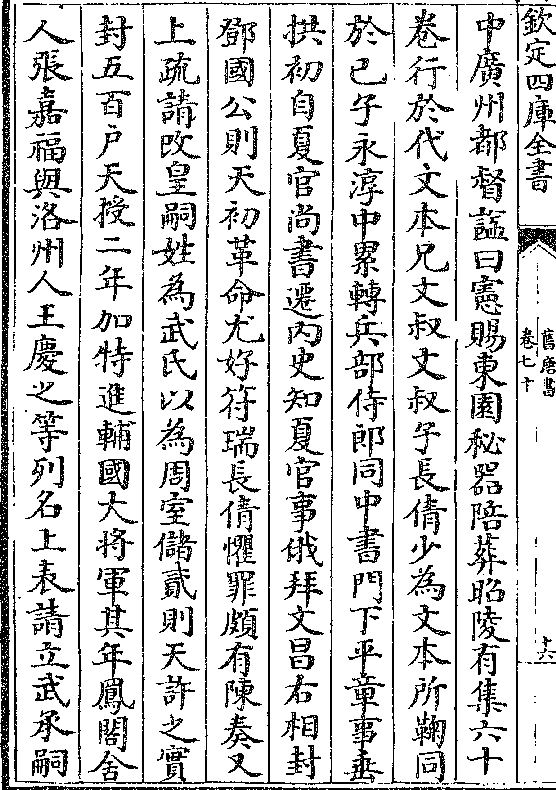 欽定四庫全書
舊唐書
卷七十
十六
中廣州都督諡曰憲賜東園秘器陪葬昭陵有集六十
卷行於代文本兄文叔文叔子長倩少為文本所鞠同
於已子永淳中累轉兵部侍郎同中書門下平章事垂
拱初自夏官尚書遷内史知夏官事俄拜文昌右相封
鄧國公則天初革命尤好符瑞長倩懼罪頗有陳奏又
上疏請改皇嗣姓為武氏以為周室儲貳則天許之實
封五百户天授二年加特進輔國大將軍其年鳳閣舍
人張嘉福與洛州人王慶之等列名上表請立武承嗣